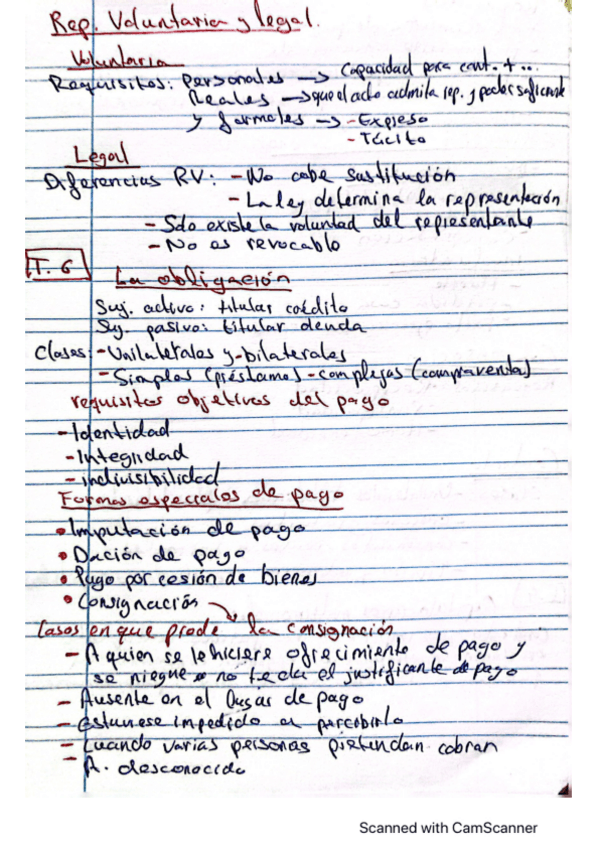 Rep. Voluntaria y legal.
Voluntaria
Requisitos: Personales → Capacidad para cont. + ...
Reales → que el acto admita rep. y poder suficiente
y formales → - Expreso
- Tácito
Legal
Diferencias RV: - No cabe sustitución
- La ley determina la representación
- Solo existe la voluntad del representante
- No es revocable
T. 6
La obligación
Suj. activo: titular crédito
Suj. pasivo: titular deuda
Clases: - Unilaterales y -bilaterales
- Simples (préstamo) - complejas (compraventa)
requisitos objetivos del pago
- Identidad
- Integridad
- indivisibilidad
Formas especiales de pago
• Imputación de pago
• Dación de pago
• Pago por cesión de bienes
• Consignación
Casos en que prode la consignación
- A quien se le hiciere ofrecimiento de pago y
se niegue o no te da el justificante de pago
- Ausente en el lugar de pago
- estuviese impedido en percibirlo
- Cuando varias personas pretendan cobrar
- A. desconocido
Scanned with CamScanner